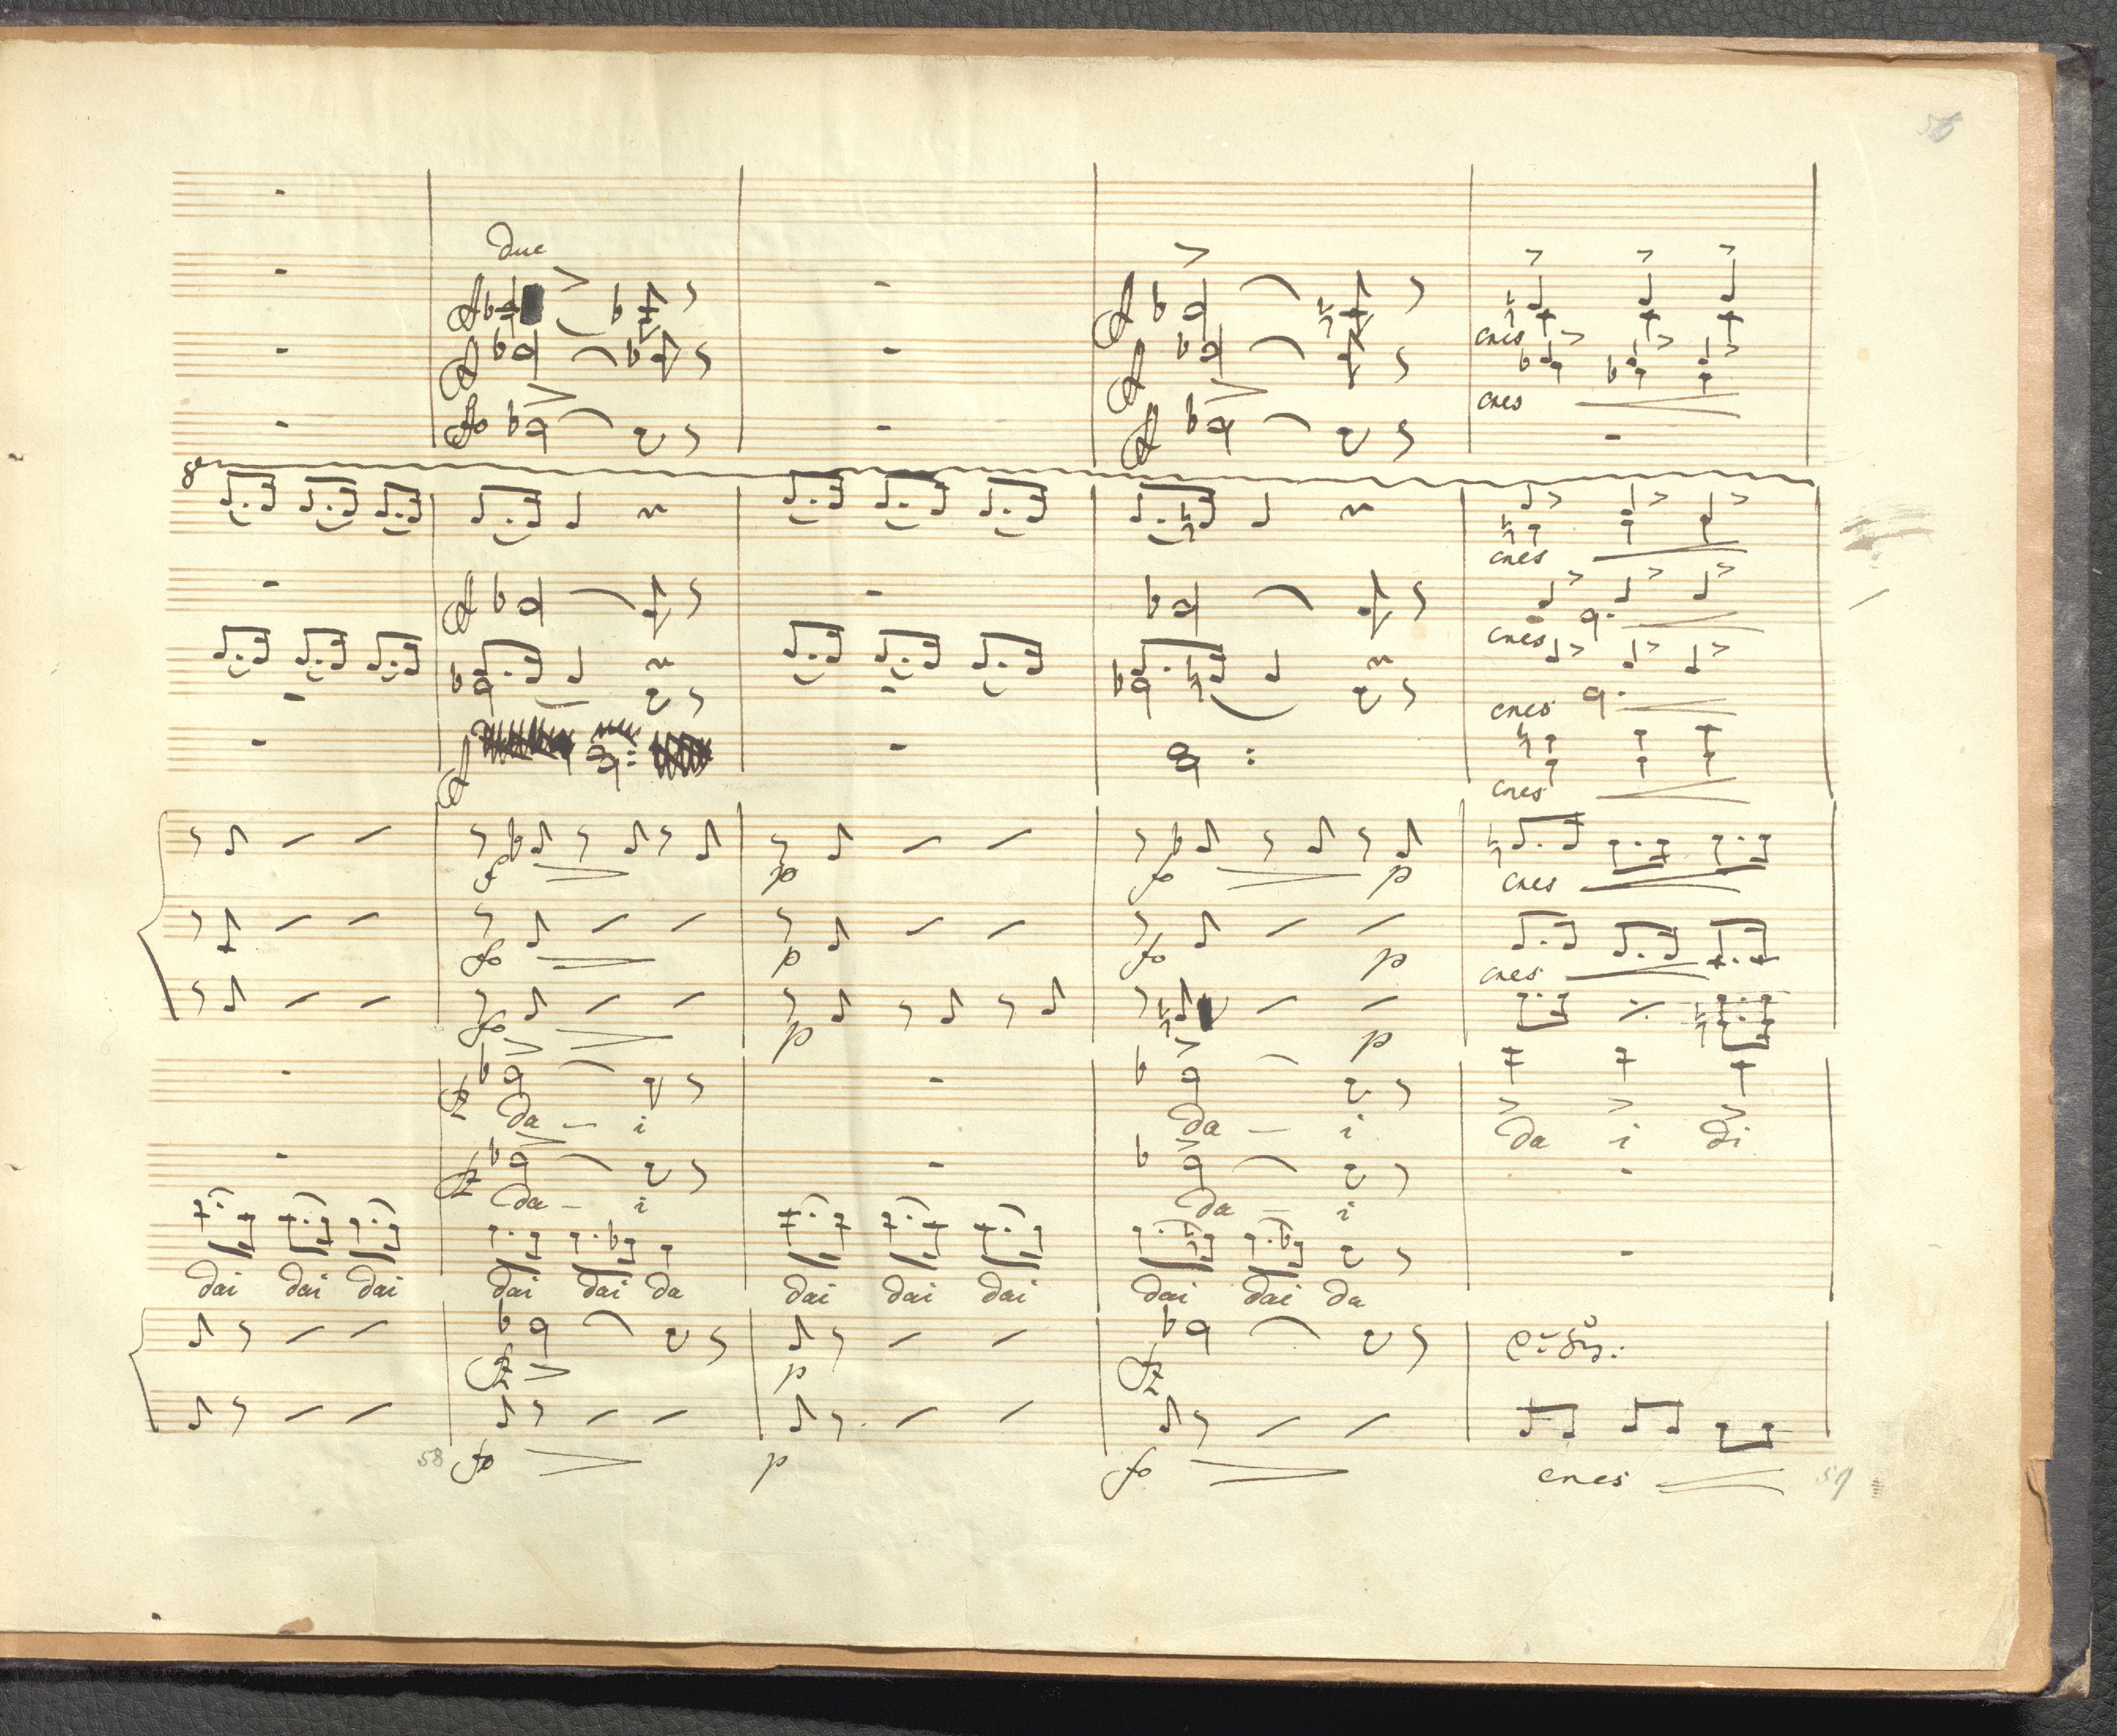 56
due
cres
cres
8va
cres
cres
cres
cres
f p fo p cres
fo p fo p cres
fo p p
da – i da – i da i di
fz
da – i da – i
fz
dai dai dai dai dai da dai dai dai dai dai da
fz p fz
58 fo p fo cres 59